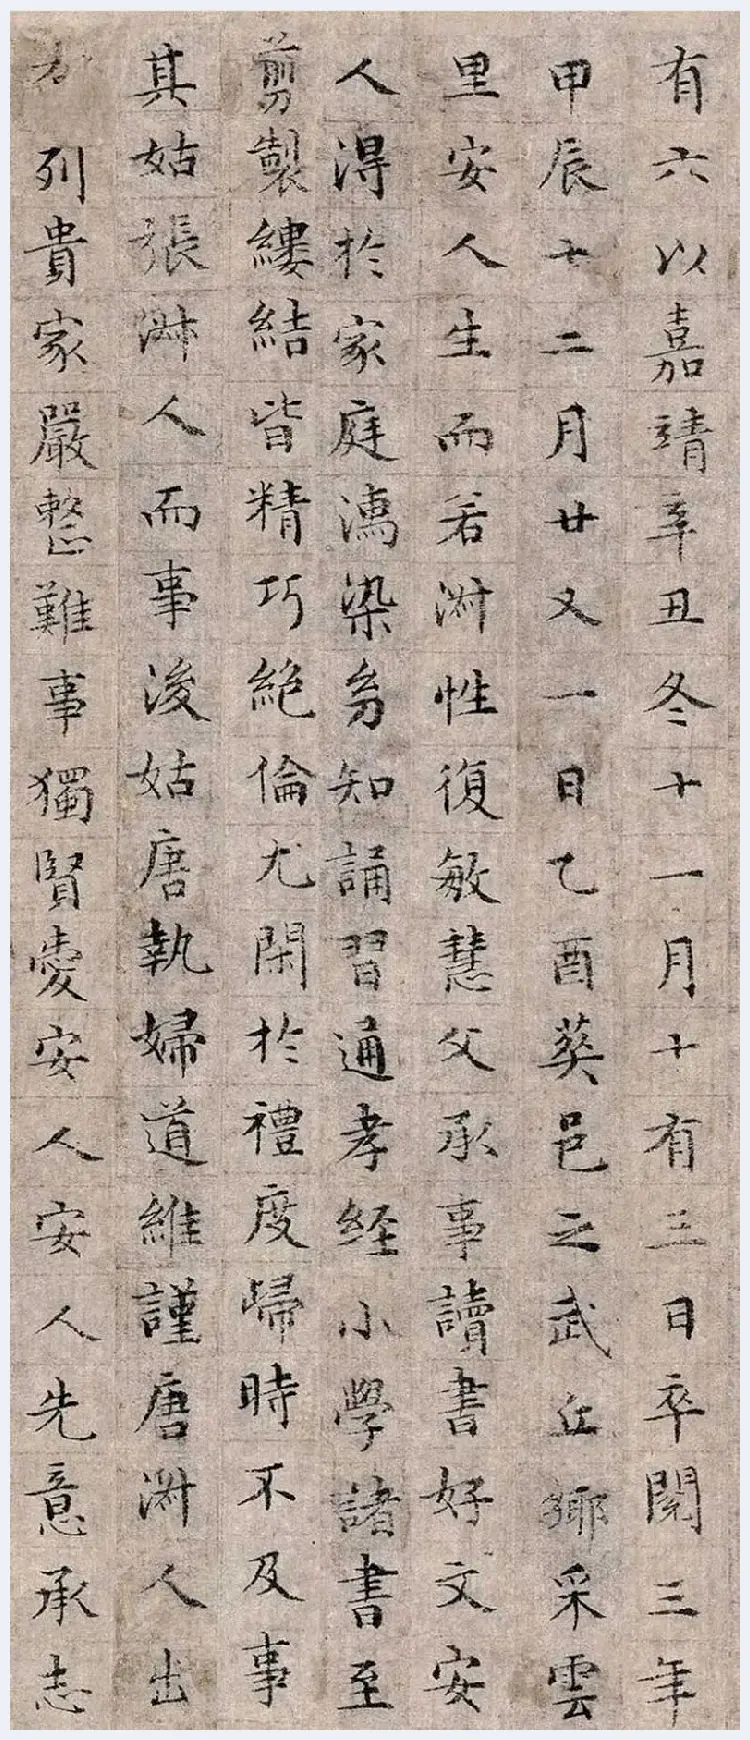 有六以嘉靖辛丑冬十一月十有三日卒閱三年
甲辰十二月廿又一日乙酉葬邑之武丘鄉采雲
里安人生而若淑性復敏慧父承事讀書好文安
人淂於家庭濡染多知誦習通孝経小學諸書至
剪製縷結皆精巧絶倫尤閑於禮度歸時不及事
其姑張淑人而事後姑唐執婦道維謹唐淑人出
列貴家嚴整難事獨賢愛安人安人先意承志